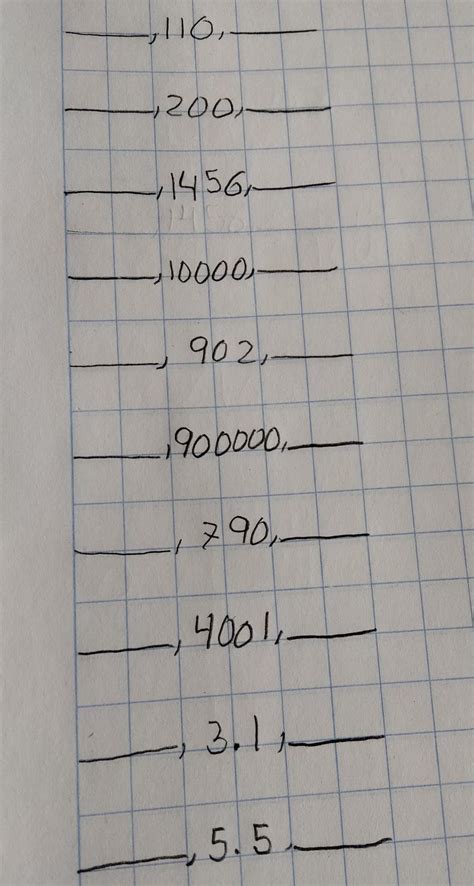 ____,110,____
____,200,____
____,1456,____
____,10000,____
____, 902,____
____,900000,____
____, 790,____
____, 4001,____
____, 3.1,____
____, 5.5 ____